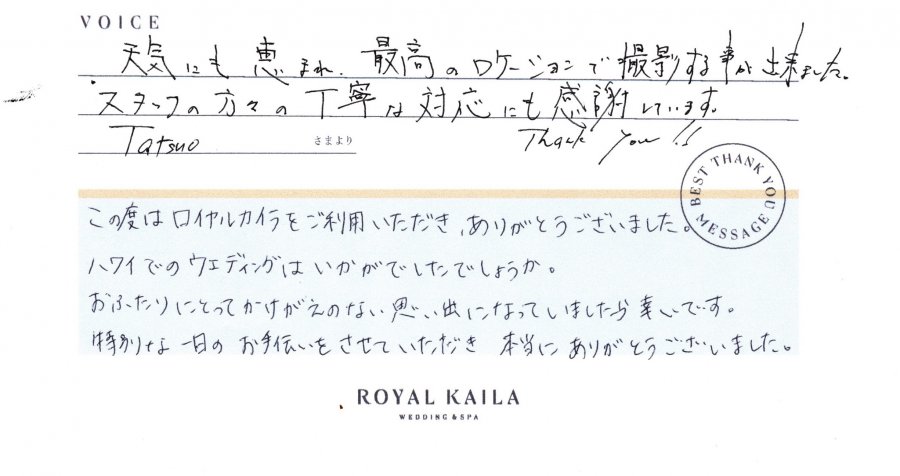 VOICE
天気にも恵まれ、最高のロケーションで撮影する事が出来ました。
スタッフの方々の丁寧な対応にも感謝しています。
Thank You!!
Tatsuo さまより
BEST THANK YOU MESSAGE
この度はロイヤルカイラをご利用いただき、ありがとうございました。
ハワイでのウエディングはいかがでしたでしょうか。
おふたりにとってかけがえのない思い出になっていましたら幸いです。
特別な一日のお手伝いをさせていただき 本当にありがとうございました。
ROYAL KAILA
WEDDING & SPA